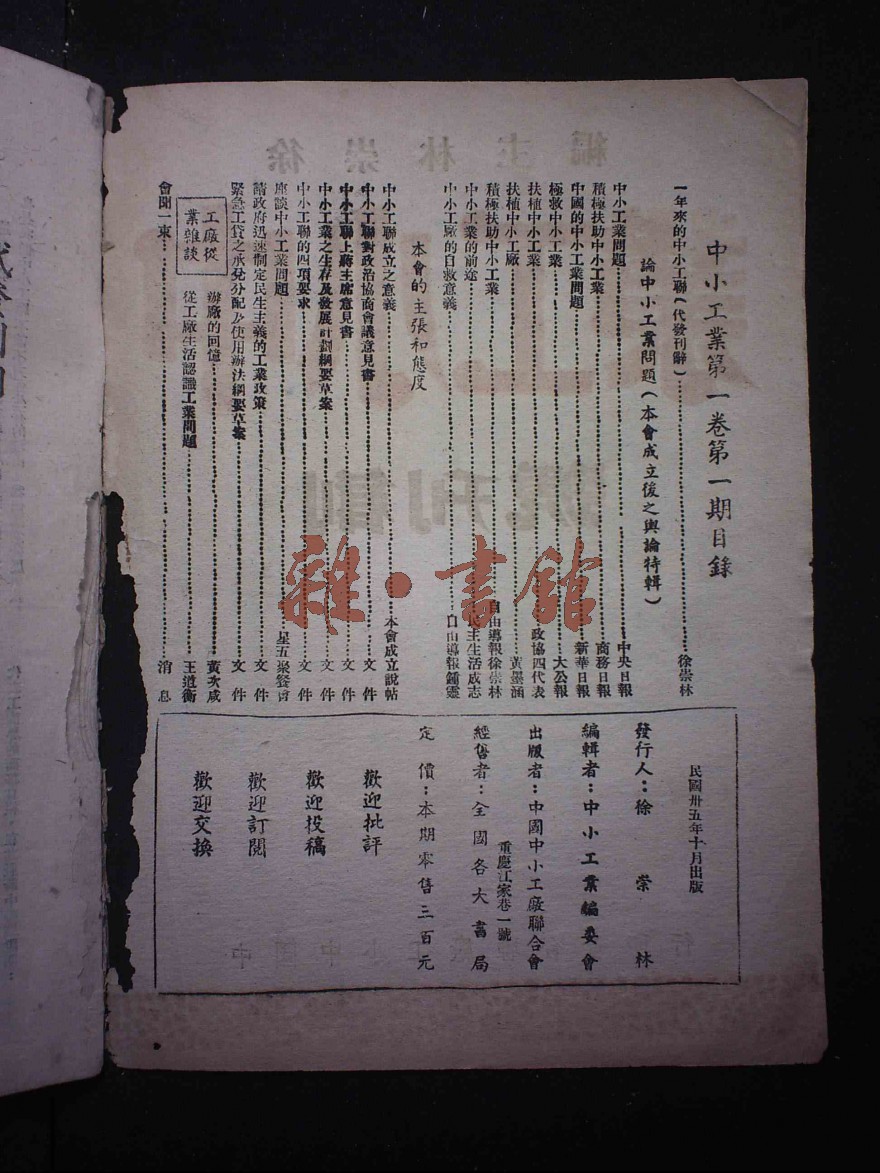 中小工業第一卷第一期目錄
一年來的中小工聯(代發刊辭)………徐崇林
論中小工業問題(本會成立後之輿論特輯)
中小工業問題………中央日報
積極扶助中小工業………商務日報
中國的中小工業問題………新華日報
極救中小工業………大公報
扶植中小工業………政協四代表
扶植中小工廠………黃墨涵
積極扶助中小工業………自由導報徐崇林
中小工業的前途………民主生活成志
中小工廠的自救意義………自由導報鍾靈
本會的主張和態度
中小工聯成立之意義………本會成立說帖
中小工聯對政治協商會議意見書………文件
中小工聯上蔣主席意見書………文件
中小工業之生存及發展計劃綱要草案………文件
中小工聯的四項要求………文件
座談中小工業問題………星五聚餐會
請政府迅速制定民生主義的工業政策………文件
緊急工貸之承兌分配及使用辦法綱要草案………文件
工廠從
業雜談
辦廠的回憶………黃次咸
從工廠生活認識工業問題………王道衡
會聞一束………消息
民國卅五年十月出版
發行人:徐崇林
編輯者:中小工業編委會
出版者:中國中小工廠聯合會
重慶江家巷一號
經售者:全國各大書局
定價:本期零售三百元
歡迎批評
歡迎投稿
歡迎訂閱
歡迎交換
雜·書館
編主林崇徐
號刊創